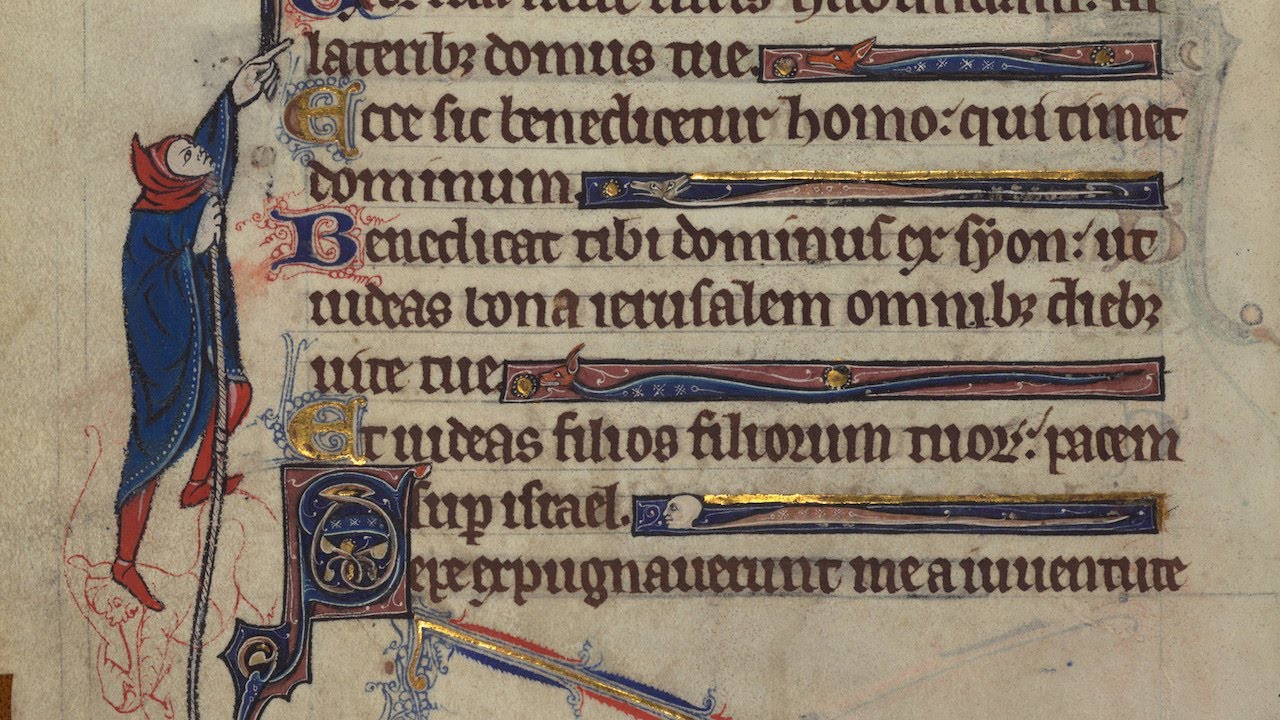 uitis habundans: in
lateribꝫ domus tue.
Ecce sic benedicetur homo: qui timet
dominum.
Benedicat tibi dominus ex syon: ut
uideas bona ierusalem omnibꝫ diebꝫ
uite tue.
Et uideas filios filiorum tuoꝝ: pacem
suꝑ israel.
Sepe expugnauerunt me a iuuentute